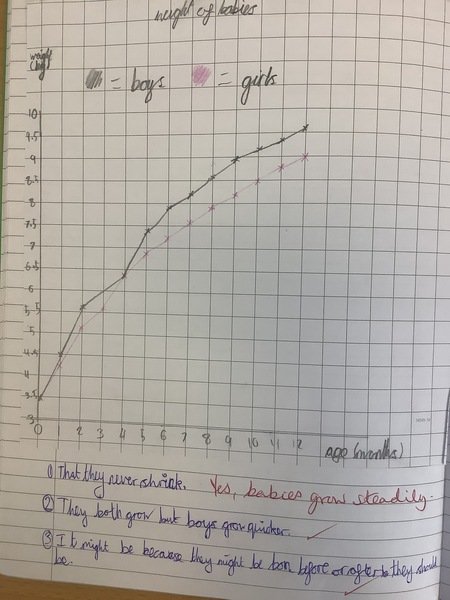 weight of babies
weight
(kg)
= boys = girls
10
9.5
9
8.5
8
7.5
7
6.5
6
5.5
5
4.5
4
3.5
3
0 1 2 3 4 5 6 7 8 9 10 11 12
age (months)
① That they never shrink. Yes, babies grow steadily.
② They both grow but boys grow quicker. ✓
③ It might be because they might be born before or after they should
be.